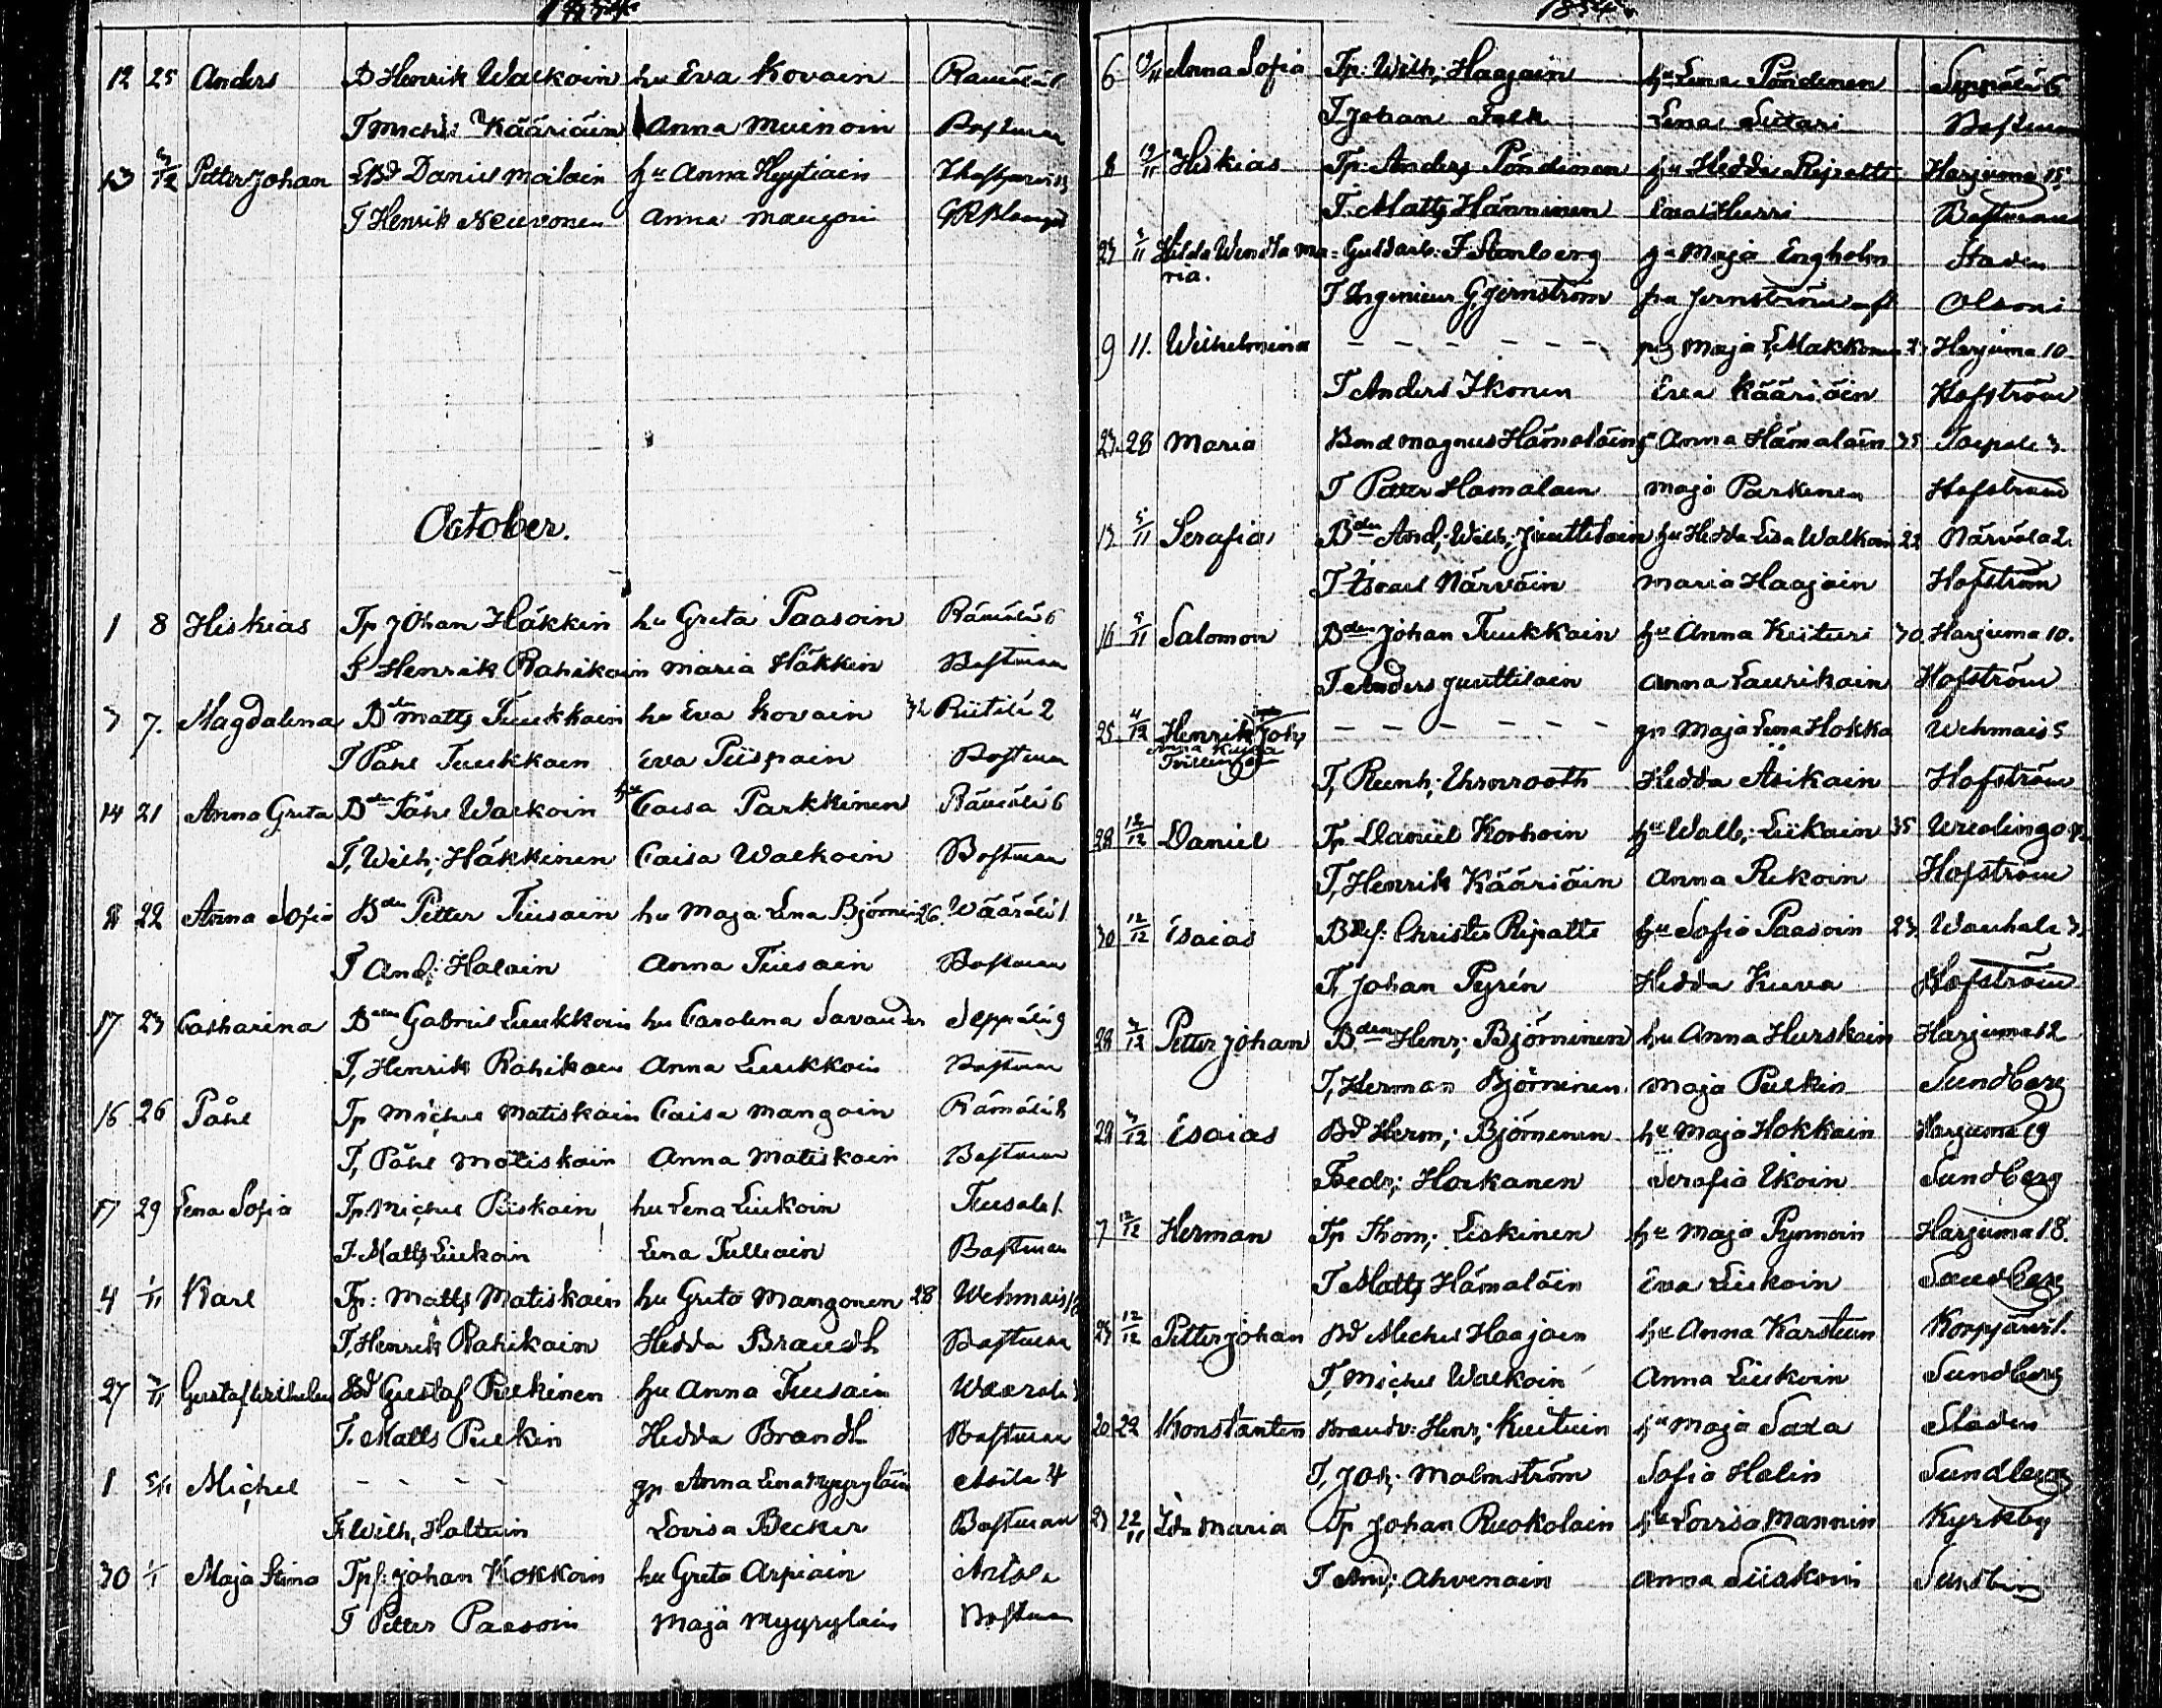 12 25 Anders B Henrik Walkoin hu Eva Kovain
T Michel Kääriäin Anna Muinoin Bostman
13 Petter Johan Bd Daniel Moilain hu Anna Hyytiäin
T Henrik Neuvonen Anna
October.
1 8 Hiskias Tp Johan Häkkin hu Greta Paasoin Rämälä 6
T Henrik Rahikain Maria Häkkin Bostman
3 7. Magdalena Bdn Matts Tuukkain hu Eva Kovain 32 Riitilä 2
T Påhl Tuukkain Eva Piispain Bostman
14 21 Anna Greta Bdn Påhl Walkoin hu Caisa Parkkinen Rämälä 6
T, Wilh; Häkkinen Caisa Walkoin Bostman
22 Anna Sofia Bdn Petter Tiusain hu Maja Lena Björnin 26 Wäärälä 1
T And; Halain Anna Tiusain Bostman
17 23 Catharina Bdn Gabriel Luukkoin hu Carolina Savander Seppälä 9
T, Henrik Rahikain Anna Luukkoin Bostman
16 26 Påhl Tp Michel Matiskain Caisa Mangoin Rämälä 8
T, Påhl Matiskain Anna Matiskain Bostman
17 29 Lena Sofia Tp: Michel Piiskain hu Lena Liukoin Tuusala 1.
T. Matts Liukoin Lena Tulliain Bostman
4 1/11 Karl Tp: Matts Matiskain hu Greta Mangonen 28 Wehmais
T, Henrik Rahikain Hedda Brandt Bostman
27 Gustaf Wilhelm Bd Gustaf Pulkinen hu Anna Tuusain
T. Matts Pulkin Hedda Brandt Bostman
1 5/11 Michel - - - - gp Anna Lena Myyryläin Asila 4
T. Wilh, Haltuin Lovisa Becker Bostman
30 Maja Stina Tpf: Johan Kokkoin hu Greta Arpiain Antola
T Petter Paasoin Maja Myyryläin Bostman
6 Anna Sofia Tp: Wilh; Haajain hu Lena Pöndinen Seppälä 6
T Johan Falk Lena Siitari Bostman
8 19/11 Hiskias Tp: Anders Pöndinen hu Hedda Ripatti Harjuma 15
T. Matts Hänninen Eva Hurri Bostman
23 Hilda Wendla Ma= Guldarb: F Stenberg Maja Engholm Staden
ria. T Ingenieur G Jernström fru Jernström Olsoni
9 11. Wilhelmina - - - - - - Maja L, Makkonen Harjuma 10
T Anders Ikonen Eva Kääriäin Hofström
23. 28 Maria Bond Magnus Hämäläin Anna Hämäläin 35 Taipale 3.
T Petter Hämäläin Maja Parkinen Hofström
13 5/11 Serafia Bden And; Wilh; Juuttilain hu Hedda Lisa Walkoin 22 Närvälä 2.
T Israel Närväin Maria Haajain Hofström
16 5/11 Salomon Bden Johan Tuukkain hu Anna Kuituri 30. Harjuma 10.
T Anders Juuttilain Anna Laurikain Hofström
25 4/12 Henrik Joh - - - - - - gp Maja Lena Hokka Wehmais 5
Anna Kaisa
Tvillingar
T, Reinh; Ehrnrooth Hedda Asikain Hofström
28 12/12 Daniel Tp Daniel Korhoin hu Walb; Liikain 35
T, Henrik Kääriäin Anna Rekoin Hofström
30 12/12 Esaias Christer Ripatti hu Sofia Paasoin 23 Wanhala 3.
T, Johan Pyrin Hedda Kuva Hofström
28 Petter Johan Bden Henr; Björninen hu Anna Hurskain Harjuma 12
T, Herman Björninen Maja Pulkin Sundberg
Esaias Bd Herm; Björninen hu Maja Hokkain Harjuma 19
Fredr; Horkanen Serafia Ikoin Sundberg
7 12/12 Herman Tp Thom; Eskinen hu Maja Pynnoin Harjuma 18.
T Matts Hämäläin Eva Liukoin Sundberg
23 12/12 Petter Johan Bd Michel Haajain hu Anna Karstuin
T, Michel Walkoin Anna Liukoin Sundberg
20. 22 Konstantin Brandv: Henr; Kuituin hu Maja Saxa Staden
T, Joh; Malmström Sofia Halin Sundberg
23 22/11 Ida Maria Tp Johan Ruokolain hu Lovisa Mannin Kyrkby
T And; Ahvenain Anna Siiskoin Sundberg